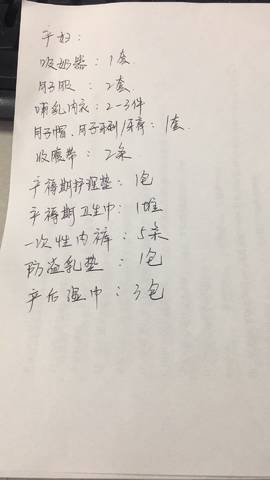 产妇：
吸奶器：1套
月子服：2套
哺乳内衣：2-3件
月子帽、月子牙刷/牙膏：1套
收腹带：2条
产褥期护理垫：1包
产褥期卫生巾：1堆
一次性内裤：5条
防溢乳垫：1包
产后湿巾：3包